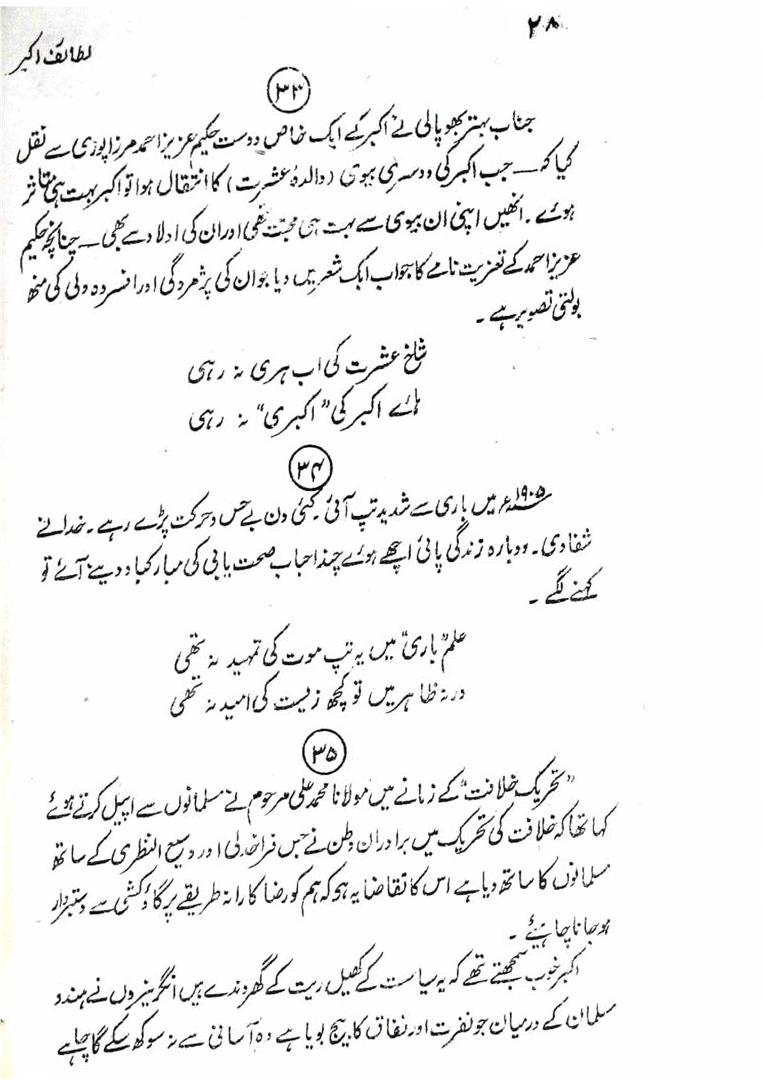 ۲۸
لطائف اکبر
۳۳
جناب بہتر بھوپالی نے اکبر کے ایک خاص دوست حکیم عزیز احمد مرزا پوری سے نقل
کیا کہ — جب اکبر کی دوسری بیوی (والدۂ عشرت) کا انتقال ہوا تو اکبر بہت ہی متاثر
ہوے ۔ انھیں اپنی ان بیوی سے بہت ہی محبت تھی اور ان کی اولاد سے بھی — چنانچہ حکیم
عزیز احمد کے تعزیت نامے کا جواب ایک شعر میں دیا جو ان کی پژمردگی اور افسردہ دلی کی منھ
بولتی تصویر ہے ۔
شاخ عشرت کی اب ہری نہ رہی
ہاے اکبر کی "اکبری" نہ رہی
۳۴
۱۹۰۵ء میں باری سے شدید تپ آئی ۔ کئی دن بے حس و حرکت پڑے رہے ۔ خدا نے
شفا دی ۔ دوبارہ زندگی پائی اچھے ہوے چند احباب صحت یابی کی مبارکباد دینے آئے تو
کہنے لگے ۔
علم "باری" میں یہ تپ موت کی تمہید نہ تھی
ورنہ ظاہر میں تو کچھ زیست کی امید نہ تھی
۳۵
"تحریک خلافت" کے زمانے میں مولانا محمد علی مرحوم نے مسلمانوں سے اپیل کرتے ہوئے
کہا تھا کہ خلافت کی تحریک میں برادران وطن نے جس فراخدلی اور وسیع النظری کے ساتھ
مسلمانوں کا ساتھ دیا ہے اس کا تقاضا یہ ہو کہ ہم کو رضا کارانہ طریقے پر گاؤ کشی سے دستبردار
ہو جانا چاہیئے ۔
اکبر خوب سمجھتے تھے کہ یہ سیاست کے کھیل ریت کے گھروندے ہیں انگریزوں نے ہندو
مسلمان کے درمیان جو نفرت اور نفاق کا بیج بویا ہے وہ آسانی سے نہ سوکھ سکے گا چاہے